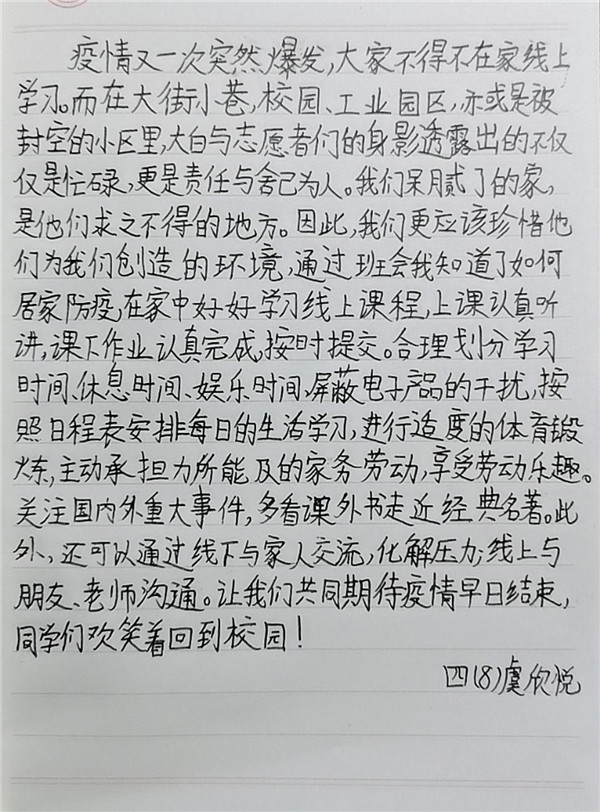 疫情又一次突然爆发,大家不得不在家线上
学习。而在大街小巷,校园、工业园区,亦或是被
封空的小区里,大白与志愿者们的身影透露出的不仅
仅是忙碌,更是责任与舍己为人。我们呆月贰了的家,
是他们求之不得的地方。因此,我们更应该珍惜他
们为我们创造的环境,通过班会我知道了如何
居家防疫,在家中好好学习线上课程,上课认真听
讲,课下作业认真完成,按时提交。合理划分学习
时间、休息时间、娱乐时间,屏蔽电子产品的干扰,按
照日程表安排每日的生活学习,进行适度的体育锻
炼,主动承担力所能及的家务劳动,享受劳动乐趣。
关注国内外重大事件,多看课外书走近经典名著。此
外,还可以通过线下与家人交流,化解压力;线上与
朋友、老师沟通。让我们共同期待疫情早日结束,
同学们欢笑着回到校园!
四(8)虞欣悦